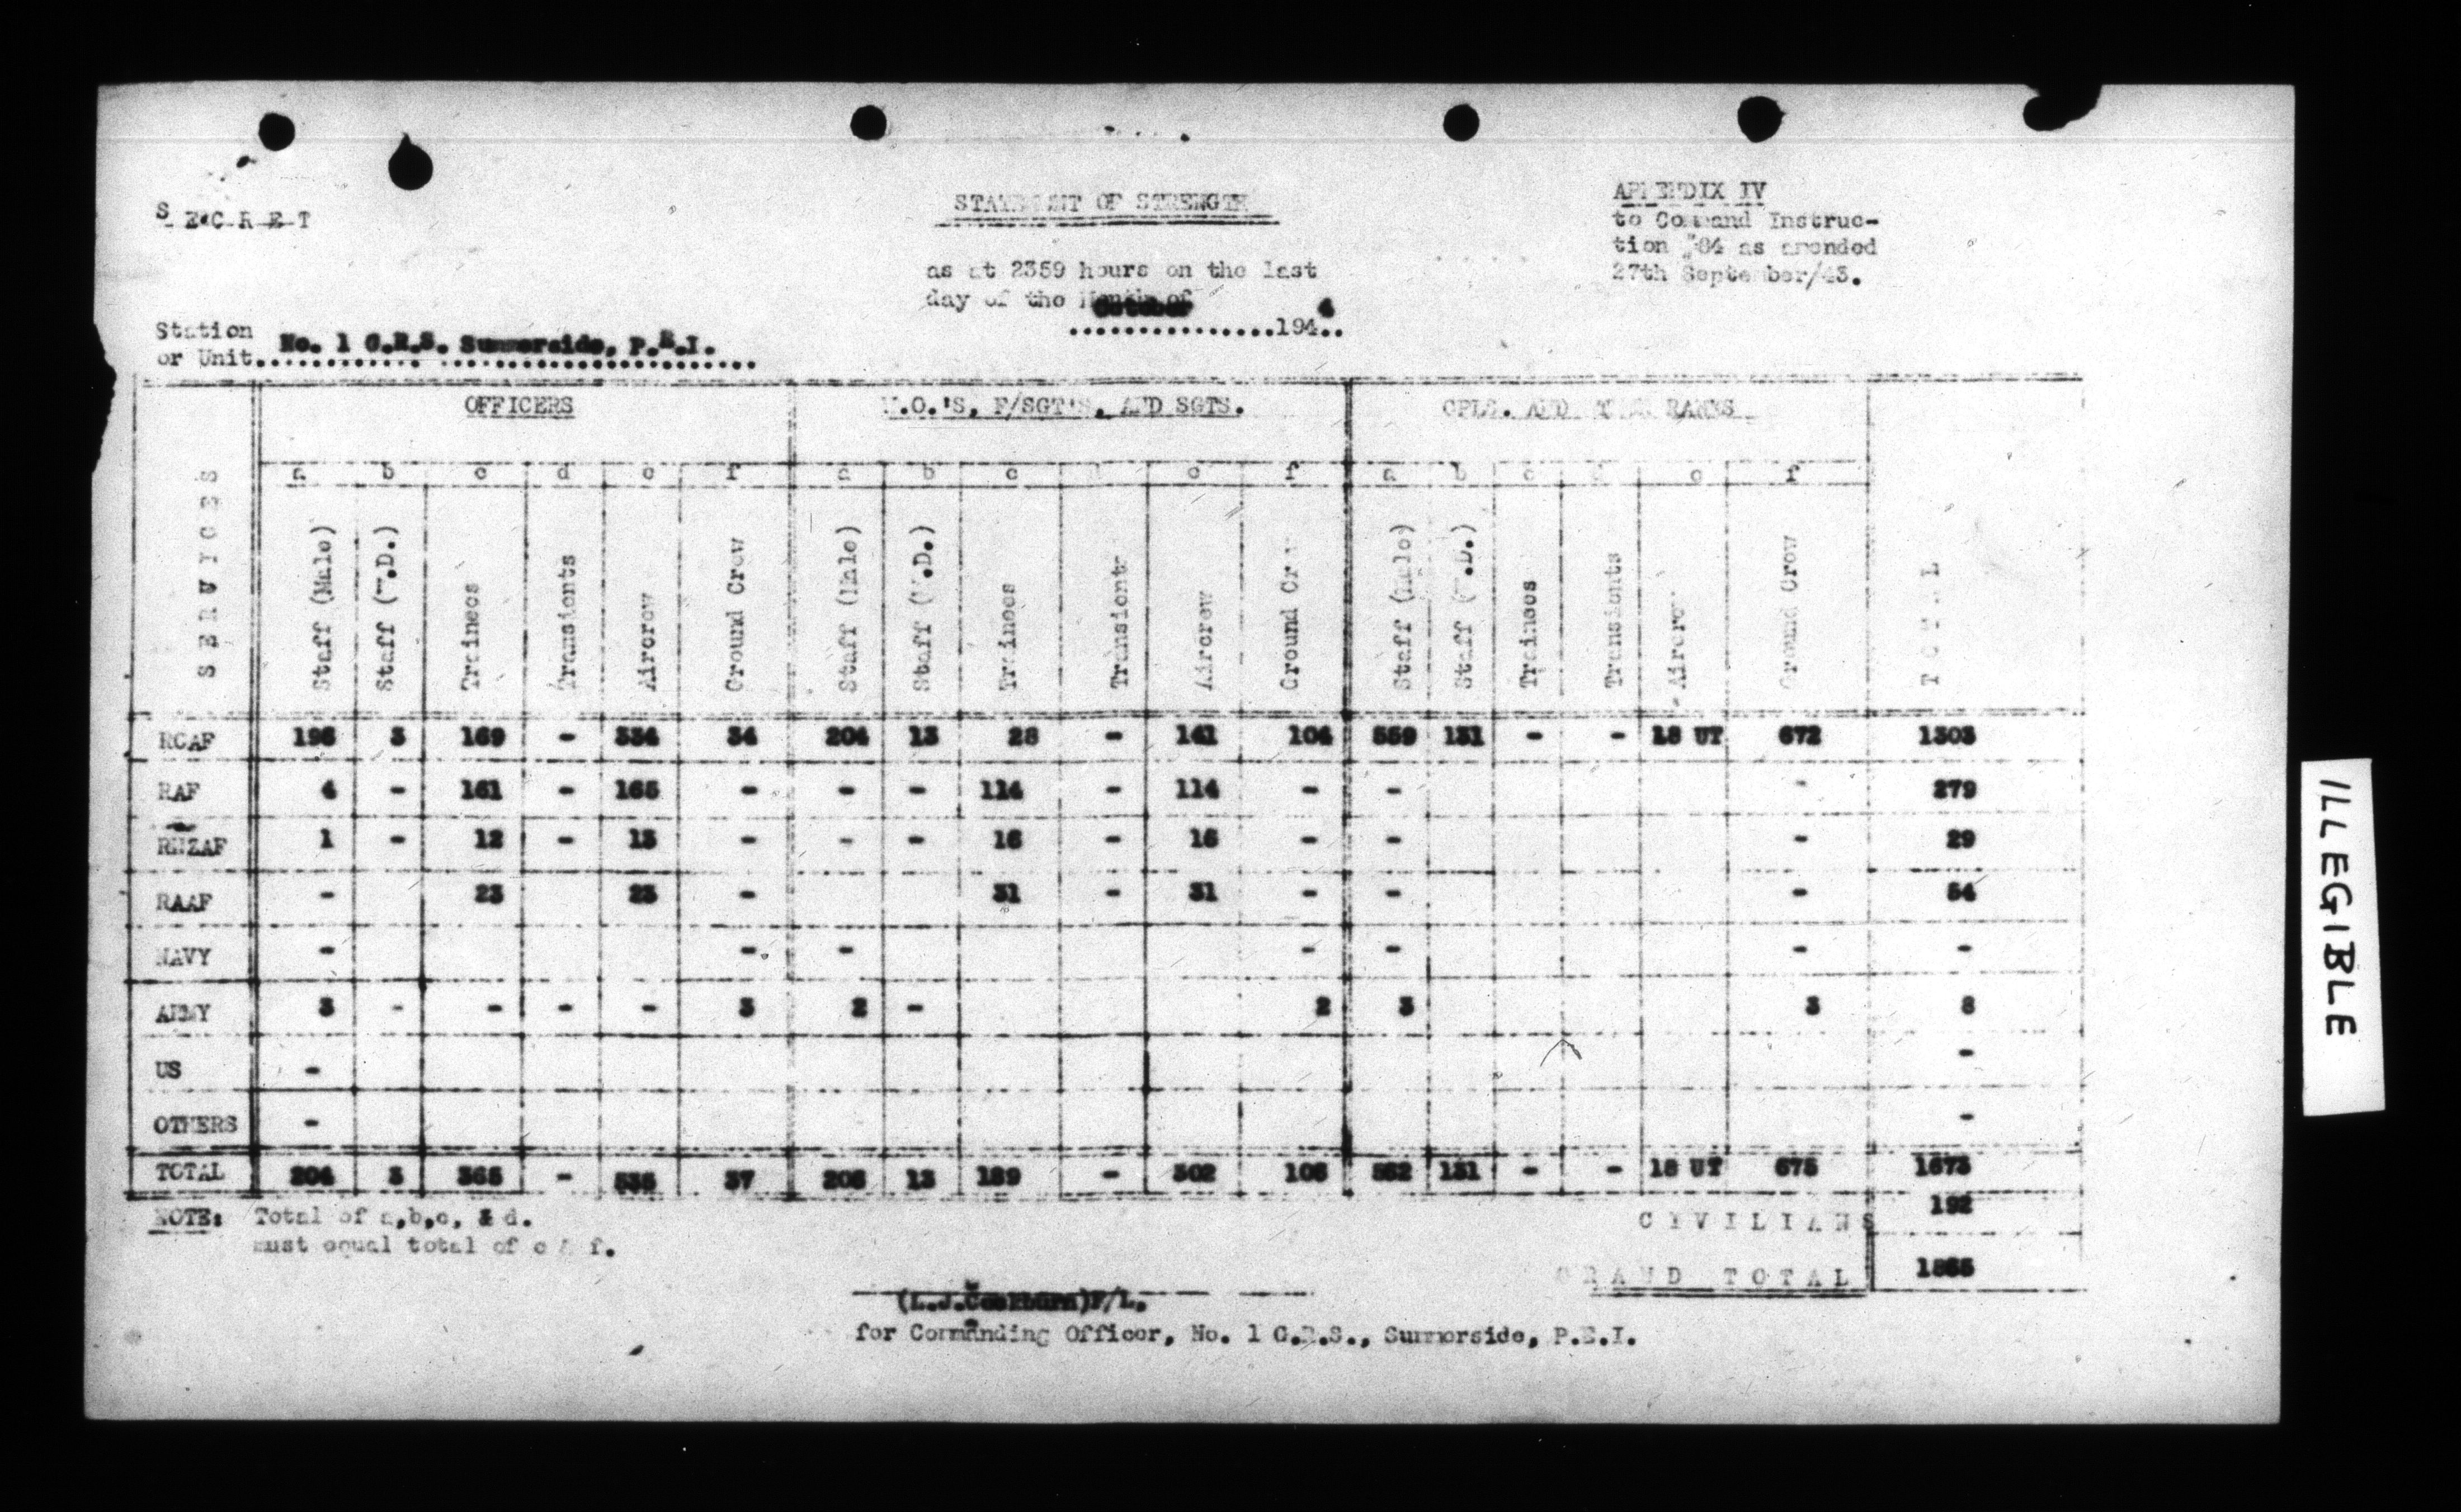 S E C R E T
STATEMENT OF STRENGTH
APPENDIX IV
to Command Instruc-
tion #84 as amended
27th September/43.
as at 2359 hours on the last
day of the Month of
October
...............194 4..
Station No. 1 G.R.S. Summerside, P.E.I.
or Unit.......................................
OFFICERS W.O.'S, F/SGT'S, AND SGTS. CPLS. AND RANKS
a b c d e f a b c e f a b c d e f
SERVICES Staff (Male) Staff (W.D.) Trainees Transients Aircrew Ground Crew Staff (Male) Staff (W.D.) Trainees Transients Aircrew Ground Crew Staff (Male) Staff (W.D.) Trainees Transients Aircrew Ground Crew TOTAL
RCAF 196 3 169 - 334 34 204 13 28 - 141 104 559 131 - - 18 UT 672 1303
RAF 4 - 161 - 165 - - - 114 - 114 - - - 279
RNZAF 1 - 12 - 13 - - - 16 - 16 - - - 29
RAAF - 23 23 - 31 - 31 - - - 54
NAVY - - - - - - -
ARMY 3 - - - - 3 2 - 2 3 3 8
US - -
OTHERS - -
TOTAL 204 3 365 - 535 37 206 13 189 - 302 106 562 131 - - 18 UT 675 1673
NOTE: Total of a,b,c, & d.
must equal total of e & f.
CIVILIANS 192
GRAND TOTAL 1865
(L.J. )F/L.
for Commanding Officer, No. 1 G.R.S., Summerside, P.E.I.
ILLEGIBLE